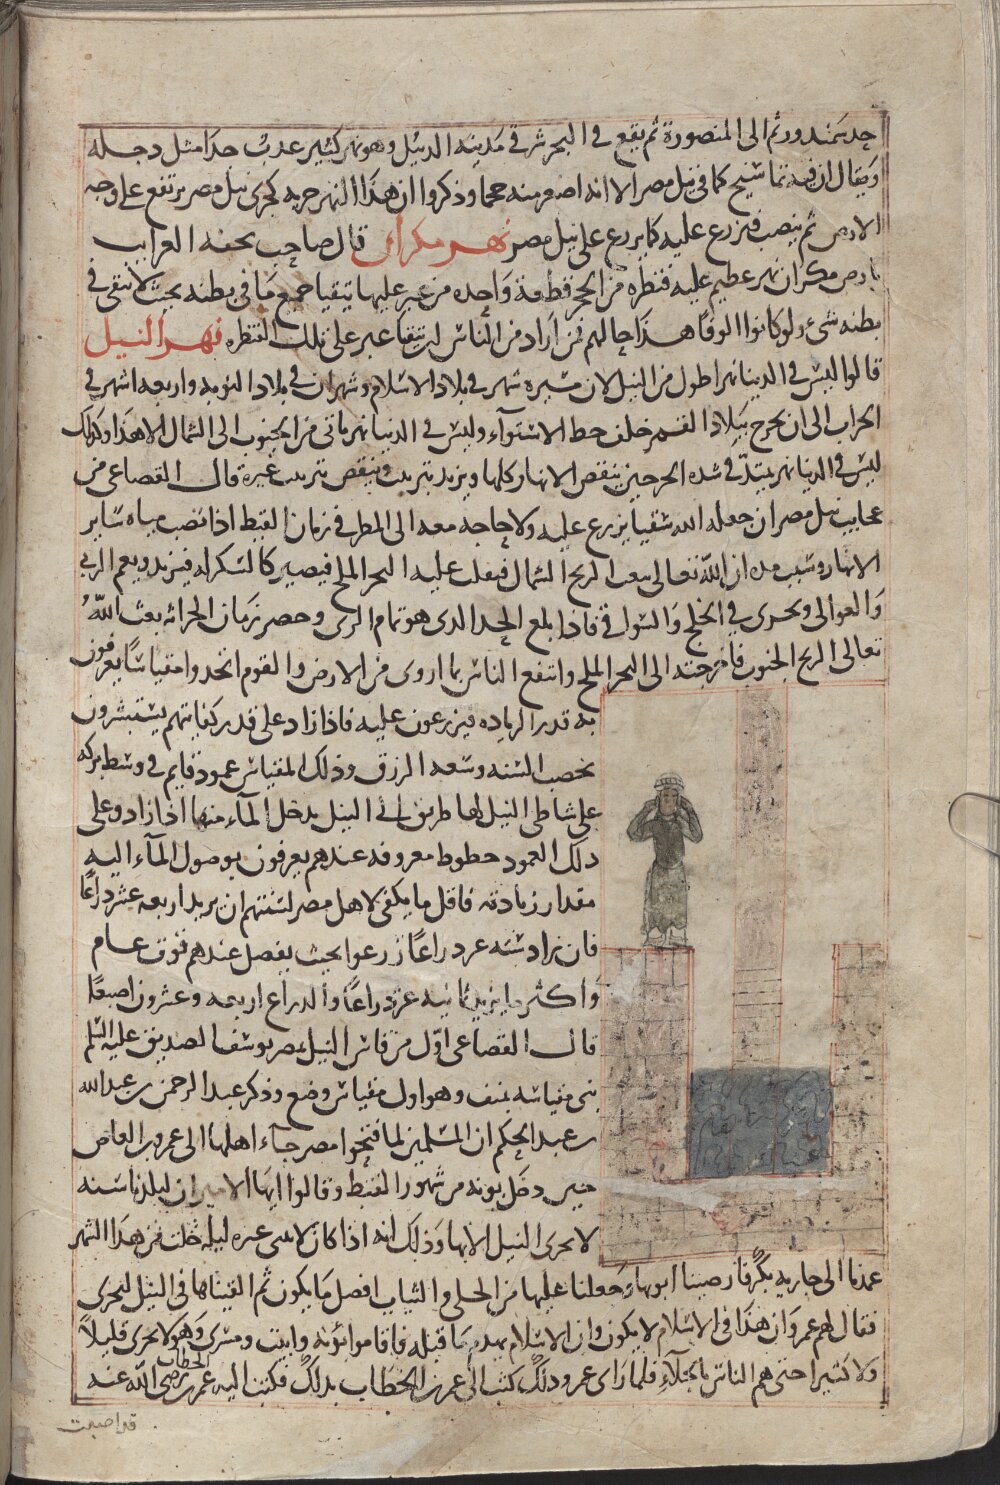 حد سمندور ثم الى المنصورة ثم يقع فى البحر شرقى مدينه الدنيل وهو نهر كثير عدب جدا مثل دجله
ويقال ان فيه تماسيح كما فى نيل مصر الا انه اصغر منه حجما وذكروا ان هذا النهر جريه كجرى نيل مصر يرتفع على وجه
الارض ثم ينصب فيزرع عليه كما يزرع على نيل مصر نهر مكران قال صاحب تحفه الغرايب
بارض مكران نهر عظيم عليه قنطره من الحجر قطعة واحده من عبر عليها يتقيا جميع ما فى بطنه بحيث لا يبقى فى
بطنه شىء ولو كانوا الوفا هذا حالهم فمن اراد من الناس ان يتقيا عبر على تلك القنطره نهر النيل
قالوا ليس فى الدنيا نهر اطول من النيل لان مسيره شهر فى بلاد الاسلام وشهران فى بلاد النوبه واربعه اشهر فى
الخراب الى ان يخرج ببلاد القمر خلف خط الاستوآء وليس فى الدنيا نهر ياتى من الجنوب الى الشمال الا هذا وكذلك
ليس فى الدنيا نهر يمتد فى شده الحر حين ينقص الانهار كلها ويزيد بترتيب وينقص بترتيب غيره قال القضاعى من
عجايب نيل مصر ان جعله الله سقيا يزرع عليه ولا حاجه معه الى المطر فى زمان القيظ اذا نضب مياه ساير
الانهار وسبب مده ان الله تعالى يبعث الريح الشمال فيقلب عليه البحر الملح فيصير كالسكر له فيزيد ويعم الربى
والعوالى ويجرى فى الخلج والسواقى فاذا بلغ الحد الدى هو تمام الرى وحضر زمان الحراثه بعث الله
تعالى الريح الجنوب فاخرجته الى البحر الملح وانتفع الناس بما اروى من الارض والقوم اتخدوا مقياسا يعرفون
به قدر الزياده فيزرعون عليه فاذا زاد على قدر كفايتهم يستبشرون
بخصب السنه وسعه الرزق وذلك المقياس عمود قايم فى وسط بركه
على شاطى النيل لها طريق الى النيل يدخل المآء منها اذا زاد وعلى
دلك العمود خطوط معروفه عندهم يعرفون بوصول المآء اليه
مقدار زيادته فاقل ما يكفى لاهل مصر لسنتهم ان يزيد اربعه عشر دراعا
فان زاد سته عشر دراعا زرعوا بحيث يفضل عندهم قوت عام
واكثر ما يزيد ثمانيه عشر دراعا والدراع اربعه وعشرون اصبعا
قال القضاعى اول من قاس النيل بمصر يوسف الصديق عليه السلم
بنى مقياسه بمنف وهو اول مقياس وضع وذكر عبد الرحمن بن عبد الله
بن عبد الحكم ان المسلمين لما فتحوا مصر جآء اهلها الى عمرو بن العاص
حين دخل بونه من شهور القبط وقالوا ايها الامير ان لبلدنا سنه
لا يجرى النيل الا بها وذلك انه اذا كان لاثنى عشره ليله خلت من هذا الشهر
عمدنا الى جاريه بكر فارضينا ابويها وجعلنا عليها من الحلى والثياب افضل ما يكون ثم القيناها فى النيل ليجرى
فقال لهم عمرو ان هذا فى الاسلام لا يكون وان الاسلام يهدم ما قبله فاقاموا بؤنه وابيب ومسرى وهو لا يجرى قليلا
ولا كثيرا حتى هم الناس بالجلآء فلما راى عمرو دلك كتب الى عمر بن الخطاب بدلك فكتب اليه عمر بن الخطاب رضى الله عنه
قد اصبت